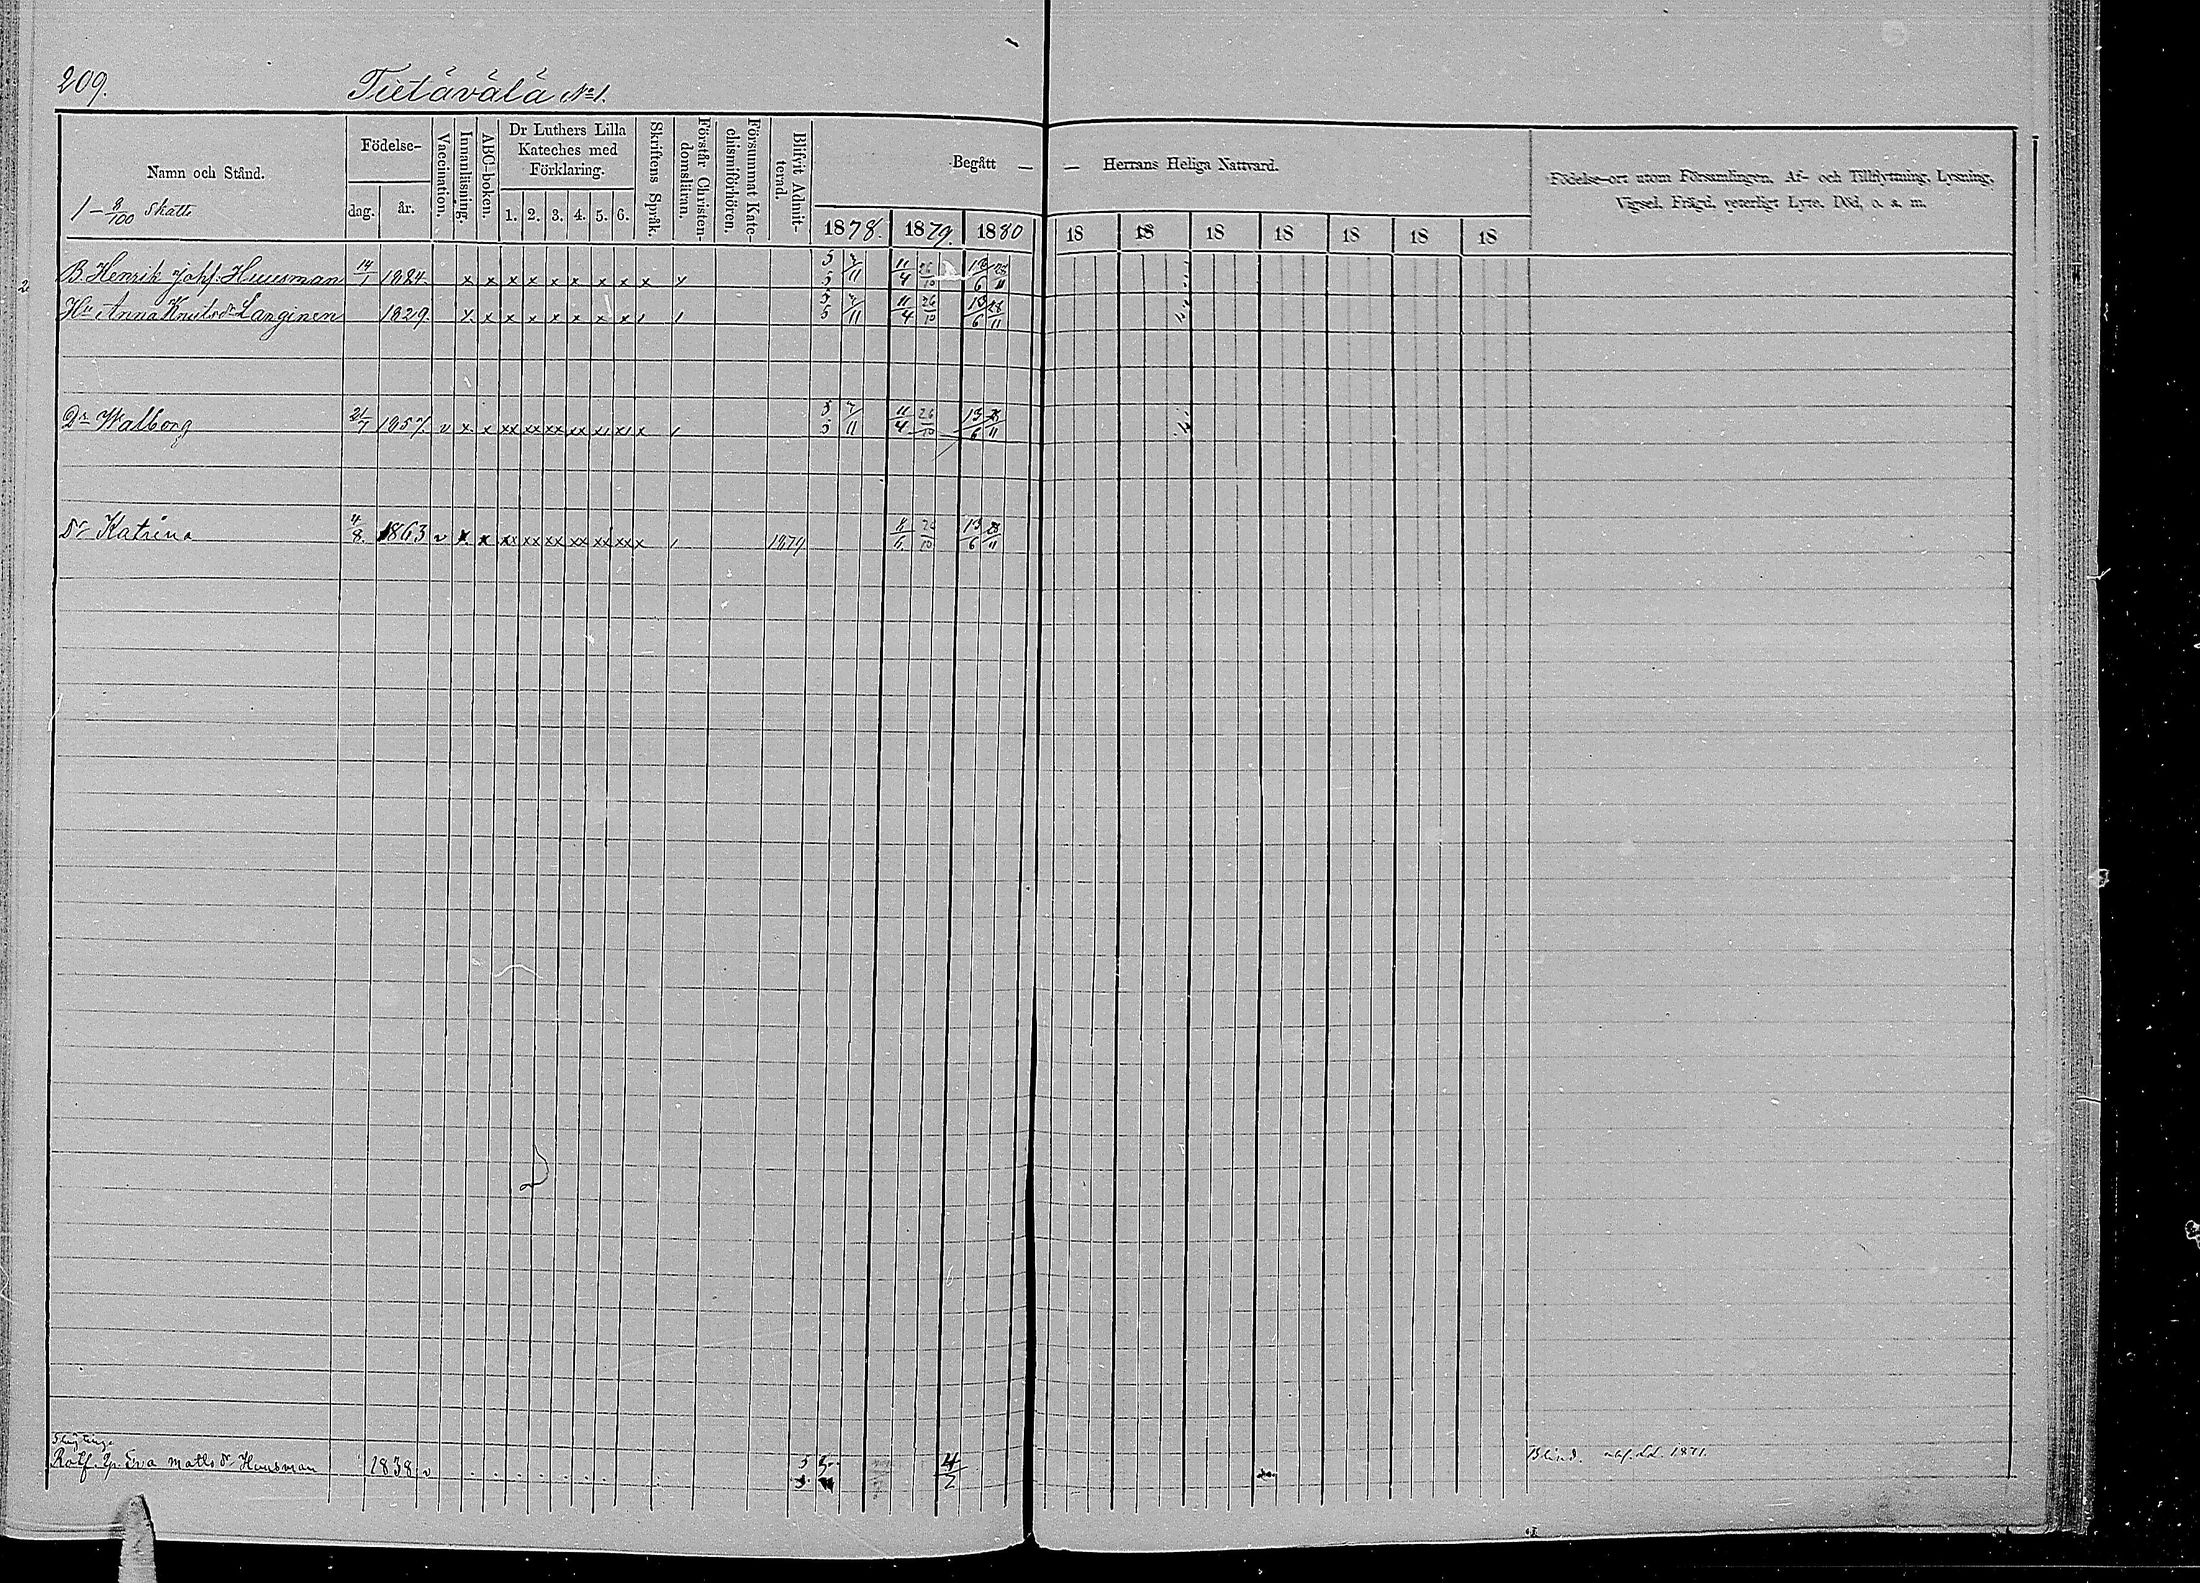 209.
Tietävälä No 1.
Namn och Stånd.
1 - 8/100 Skatte
Födelse-
dag.
år.
Vaccination.
Innanläsning.
ABC-boken.
Dr Luthers Lilla
Kateches med
Förklaring.
1. 2. 3. 4. 5. 6.
Skriftens Språk.
Förstår Christen-
domsläran.
Försummat Kate-
chismiförhören.
Blifvit Admit-
terad.
Begått — — Herrans Heliga Nattvard.
1878. 1879. 1880 18 18 18 18 18 18 18
Födelse-ort utom Församlingen, Af- och Tillflyttning, Lysning,
Vigsel, Frägd, veterligt Lyte, Död, o. s. m.
2 B. Henrik Johs. Huusman 14/1 1824. x x x x x x x x x 5/5 7/11 11/4 26/10 13/6 28/11
Hu Anna Knuts dr Langinen 1829. x x x x x x x x 5/5 7/11 11/4 26/10 13/6 28/11
Dr Walborg 21/7 1857. v x x xx xx xx xx x 5/5 7/11 11/4 26/10 13/6 28/11
Dr Katrina 4/8 1863 v x x xx xx xx xx xx xx x 1879 26/10 13/6 28/11
Eva Matts dr Huusman 1838 v 4/2 Blind. 1871.